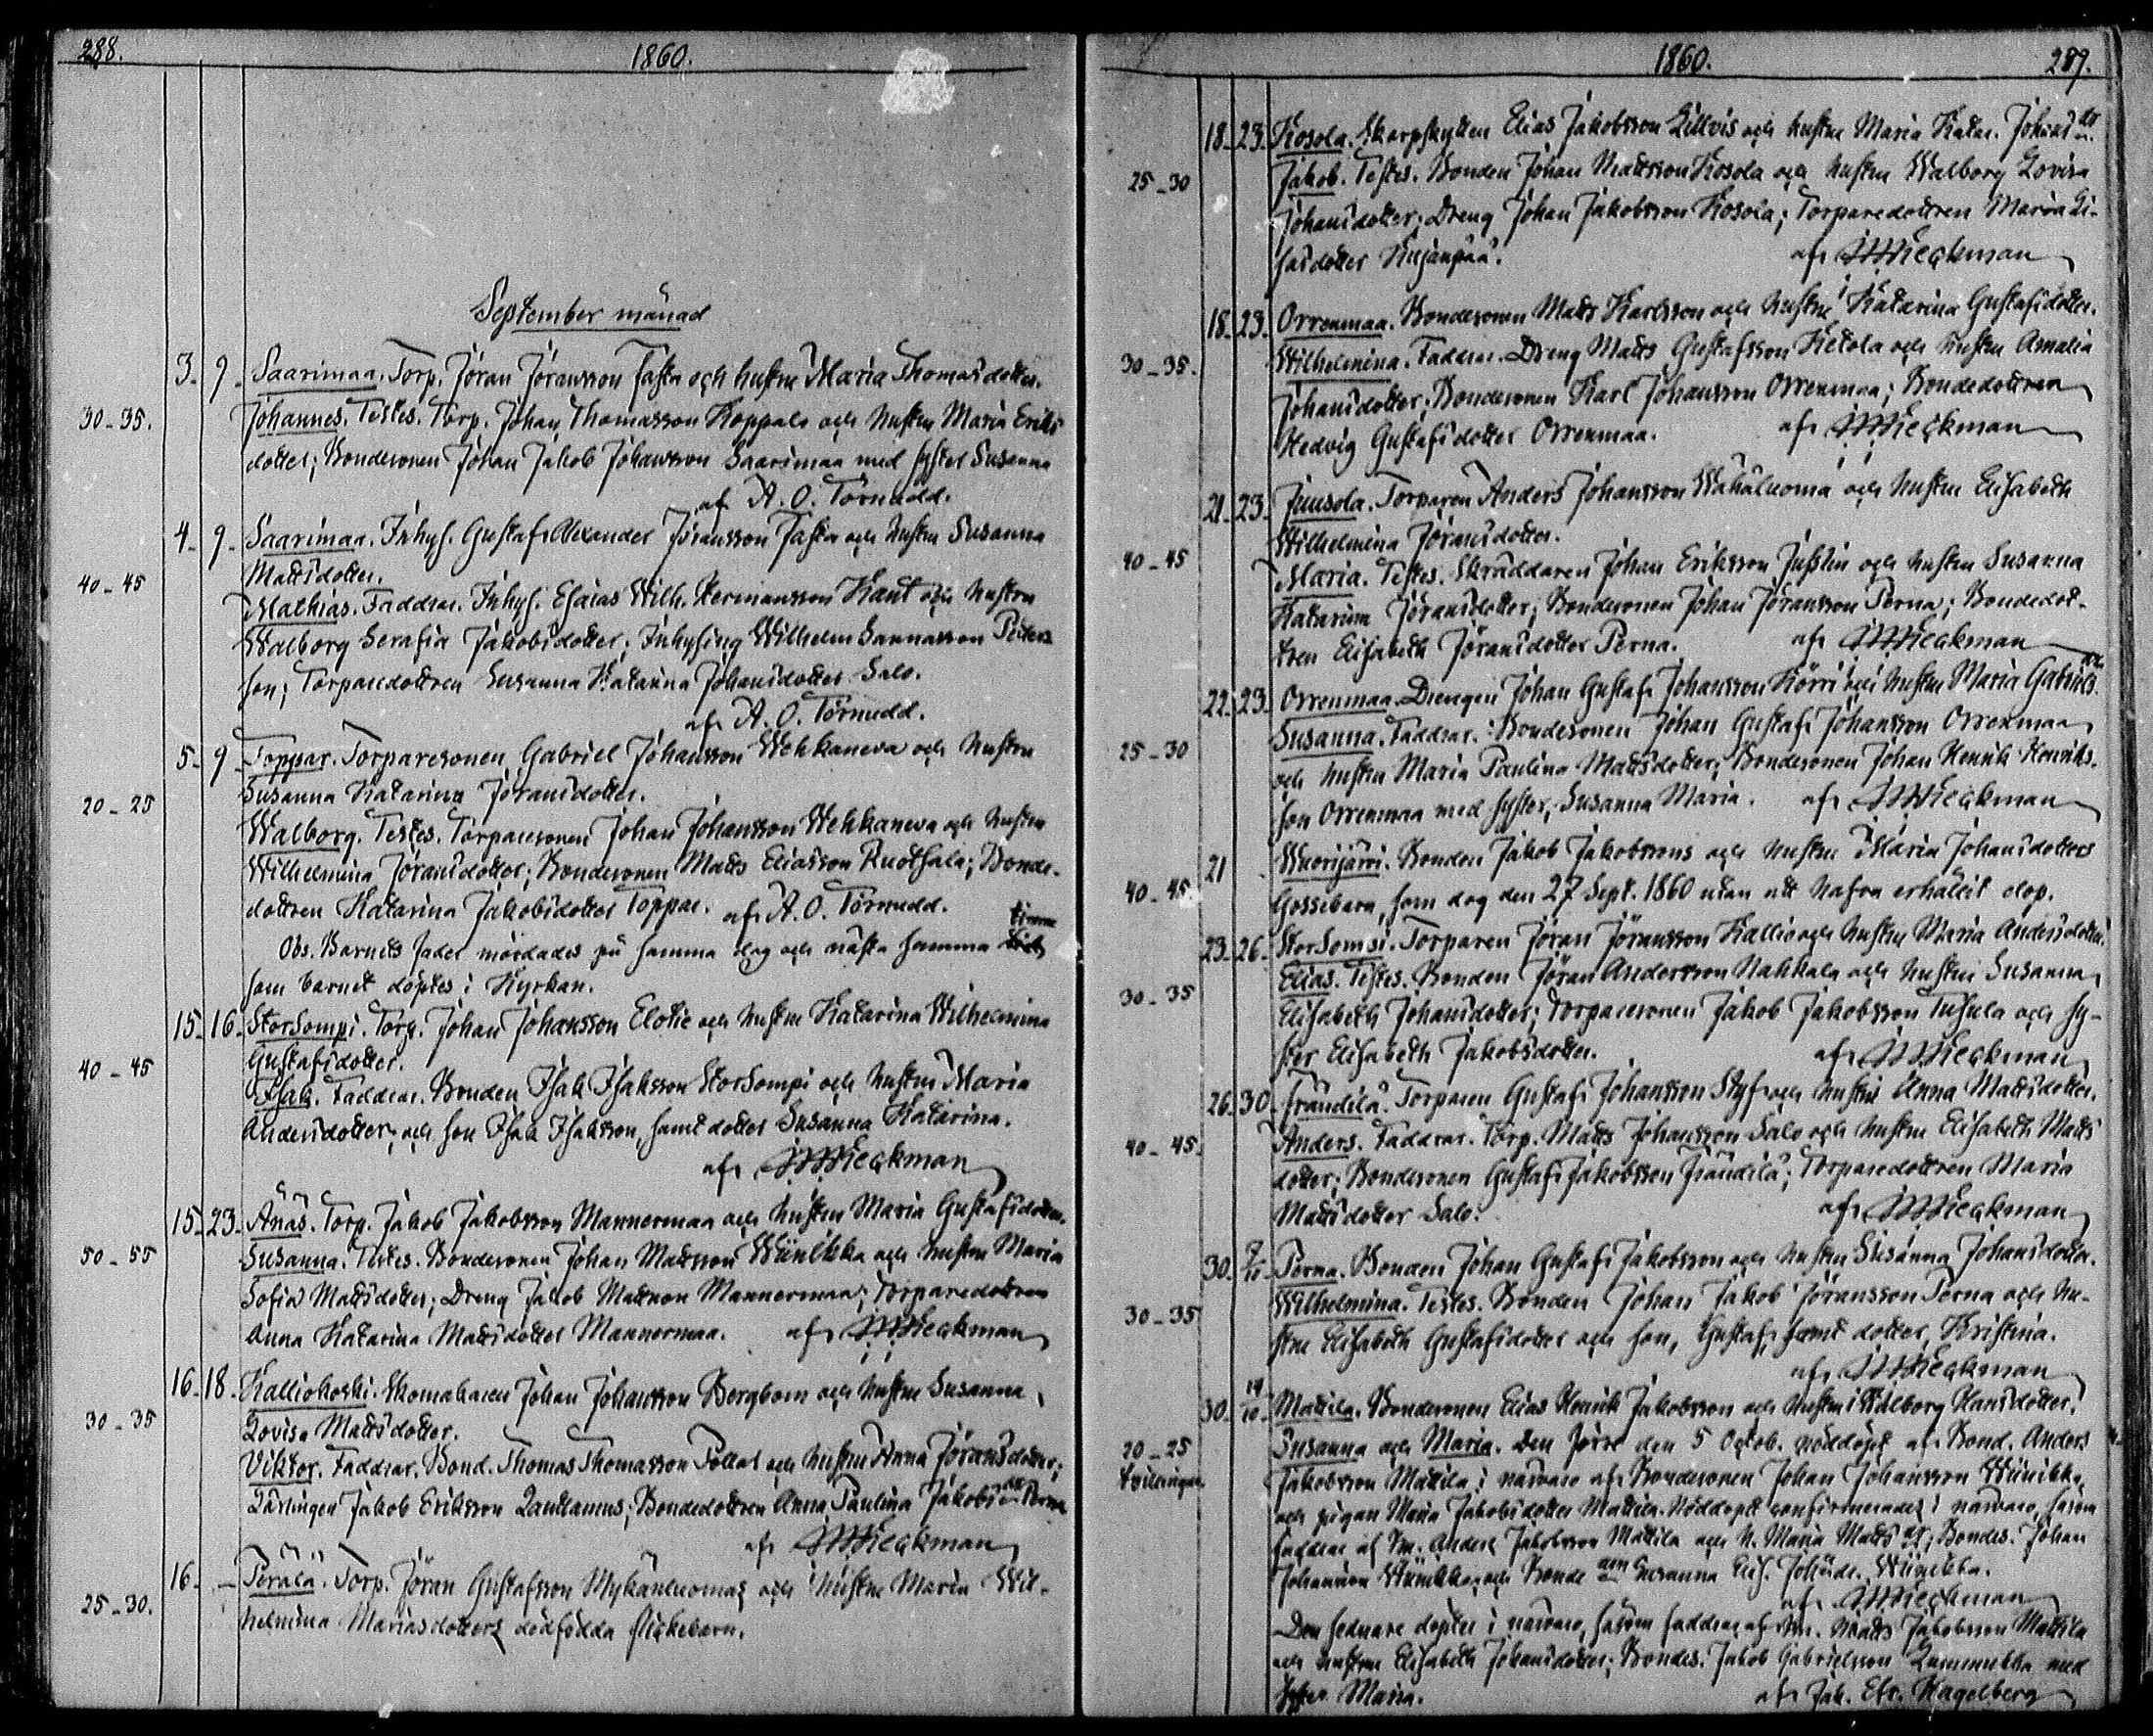 288.
1860.
September månad
3. 9. Saarimaa. Torp. Jöran Jöransson Taska och hustru Maria Thomasdotter.
30-35. Johannes. Testes. Torp. Johan Thomasson Koppala och hustru Maria Eriks
dotter; Bondesonen Johan Jakob Johansson Saarimaa med syster Susanna
af A. O. Törnudd.
4. 9. Saarimaa. Inhys. Gustaf Alexander Jöransson Taska och hustru Susanna
Mattsdotter.
40-45 Mathias. Faddrar. Inhys. Esaias Wilh. Hermansson Kant och hustru
Walborg Serafia Jakobsdotter; Inhysing Wilhelm Sannasson Peders
son; Torparedottren Susanna Katarina Johansdotter Salo.
af A. O. Törnudd.
5. 9. Toppar. Torparesonen Gabriel Johansson Wehkaneva och hustru
20-25 Susanna Katarina Jöransdotter.
Walborg. Testes. Torparesonen Johan Johansson Wehkaneva och hustru
Wilhelmina Jöransdotter; Bondesonen Matts Eliasson Ruotsala; Bonde-
dottren Katarina Jakobsdotter Toppar. af A. O. Törnudd.
timme
Obs. Barnets fader mördades på samma dag och nästa samma
som barnet döptes i Kyrkan.
15. 16. Storsompi. Torp. Johan Johansson Elotie och hustru Katarina Wilhelmina
Gustafsdotter.
40-45 Isak. Faddrar. Bonden Isak Isaksson Storsompi och hustru Maria
Andersdotter, och son Isak Isaksson, samt dotter Susanna Katarina.
af Wieckman
15. 23. Änäs. Torp. Jakob Jakobsson Mannermaa och hustru Maria Gustafsdotter.
50-55 Susanna. Testes. Bondesonen Johan Mattsson Wiinikka och hustru Maria
Sofia Mattsdotter; Dreng Jakob Mattsson Mannermaa; Torparedottren
Anna Katarina Mattsdotter Mannermaa. af Wieckman
16. 18. Kalliokoski. Skomakaren Johan Johansson Bergbom och hustru Susanna
30-35 Lovisa Mattsdotter.
Viktor. Faddrar. Bond. Thomas Thomasson Pollas och hustru Anna Jöransdotter;
Lärlingen Jakob Eriksson Lautamus; Bondedottren Anna Paulina Jakobsdtr Perna
af Wieckman
16. - Perälä. Torp. Jöran Gustafsson Mykänluomas och hustru Maria Wil-
25-30. helmina Mariasdotters dödfödda flickebarn.
1860.
289.
18. 23. Kosola. Skarpskytten Elias Jakobsson Lillvis och hustru Maria Katar. Johansdr
25-30 Jakob. Testes. Bonden Johan Mattsson Kosola och hustru Walborg Lovisa
Johansdotter; Dreng Johan Jakobsson Kosola; Torparedottren Maria Li-
sasdotter Kujanpää. af Wieckman
18. 23. Orrenmaa. Bondesonen Matts Karlsson och hustru Katarina Gustafsdotter.
30-35. Wilhelmina. Faddrar. Dreng Matts Gustafsson Ketola och hustru Amalia
Johansdotter; Bondesonen Karl Johansson Orrenmaa; Bondedottren
Hedvig Gustafsdotter Orrenmaa. af Wieckman
21. 23. Juusola. Torparen Anders Johansson Wähäluoma och hustru Elisabeth
Wilhelmina Jöransdotter.
40-45 Maria. Testes. Skräddaren Johan Eriksson Jusslin och hustru Susanna
Katarina Jöransdotter; Bondesonen Johan Jöransson Perna; Bondedot-
tren Elisabeth Jöransdotter Perna. af Wieckman
22. 23. Orrenmaa. Drengen Johan Gustaf Johansson Körri och hustru Maria Gabriels dr.
25-30 Susanna. Faddrar. Bondesonen Johan Gustaf Johansson Orrenmaa
och hustru Maria Paulina Mattsdotter; Bondesonen Johan Henrik Henriks-
son Orrenmaa med syster, Susanna Maria. af Wieckman
21 Wuorijärvi. Bonden Jakob Jakobssons och hustru Maria Johansdotters
40-45 Gossebarn, som dog den 27 Sept. 1860 utan att hafva erhållit dop.
23. 26. Storsompi. Torparen Jöran Jöransson Kallio och hustru Maria Andersdotter.
30-35 Elias. Testes. Bonden Jöran Andersson Nahkala och hustru Susanna
Elisabeth Johansdotter; Torparesonen Jakob Jakobsson Tusula och sy-
ster Elisabeth Jakobsdotter. af Wieckman
26. 30. Frändilä. Torparen Gustaf Johansson Styf och hustru Anna Mattsdotter.
40-45. Anders. Faddrar. Torp. Matts Johansson Salo och hustru Elisabeth Matts
dotter; Bondesonen Gustaf Jakobsson Frändilä; Torparedottren Maria
Mattsdotter Salo. af Wieckman
30. 7/10. Perna. Bonden Johan Gustaf Jakobsson och hustru Susanna Johansdotter.
30-35 Wilhelmina. Testes. Bonden Johan Jakob Jöransson Perna och hu-
stru Elisabeth Gustafsdotter och son, Gustaf, samt dotter, Kristina.
af Wieckman
30. 14/10. Mattila. Bondesonen Elias Henrik Jakobsson och hustru Walborg Hansdotter.
20-25 Susanna och Maria. Den förre den 5 Octob. nöddöpt af Bond. Anders
tvillingar Jakobsson Mattila i närvaro af Bondesonen Johan Johansson Wiinikka
och pigan Maria Jakobsdotter Mattila. Nöddopet confirmerades i närvaro, såsom
faddrar af Anders Jakobsson Mattila och h. Maria Matts dr; Bondes. Johan
Johansson Wiinikka och Bonde Susanna Elis. Wiinikka.
af Wieckman
Den sednare döptes i närvaro, såsom faddrar af Matts Jakobsson Mattila
och hustru Elisabeth Johansdotter; Bondes. Jakob Gabrielsson Lummukka med
syster Maria. af Jak. Efr. Hagelberg